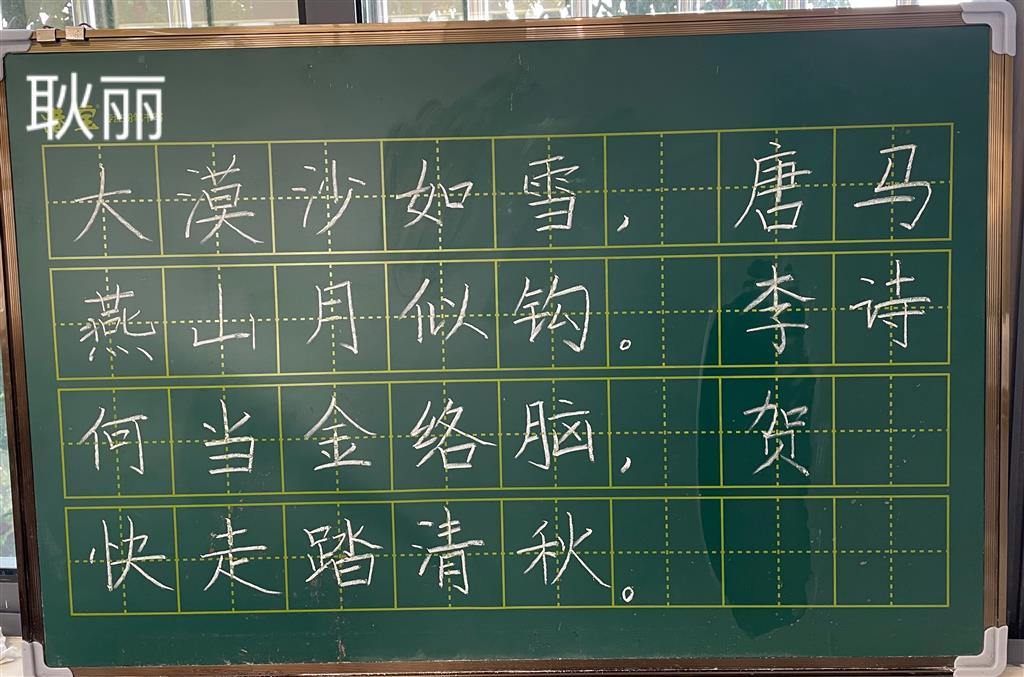 耿丽
大漠沙如雪，
燕山月似钩。
何当金络脑，
快走踏清秋。
马诗
唐李贺